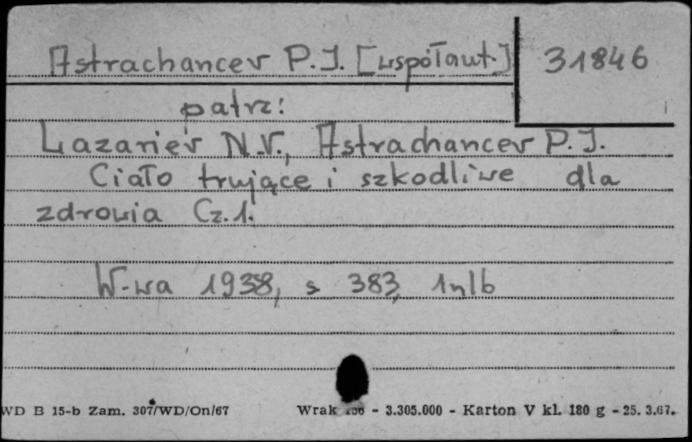 Astrachancev P.J. [współaut.] 31846
patrz:
Lazariev N.V., Astrachancev P.J.
Ciało trujące i szkodliwe dla
zdrowia Cz.1.
W-wa 1938, s 383, 1nlb
WD B 15-b Zam. 307/WD/On/67 Wrak - 3.305.000 - Karton V kl. 180 g - 25. 3.67.